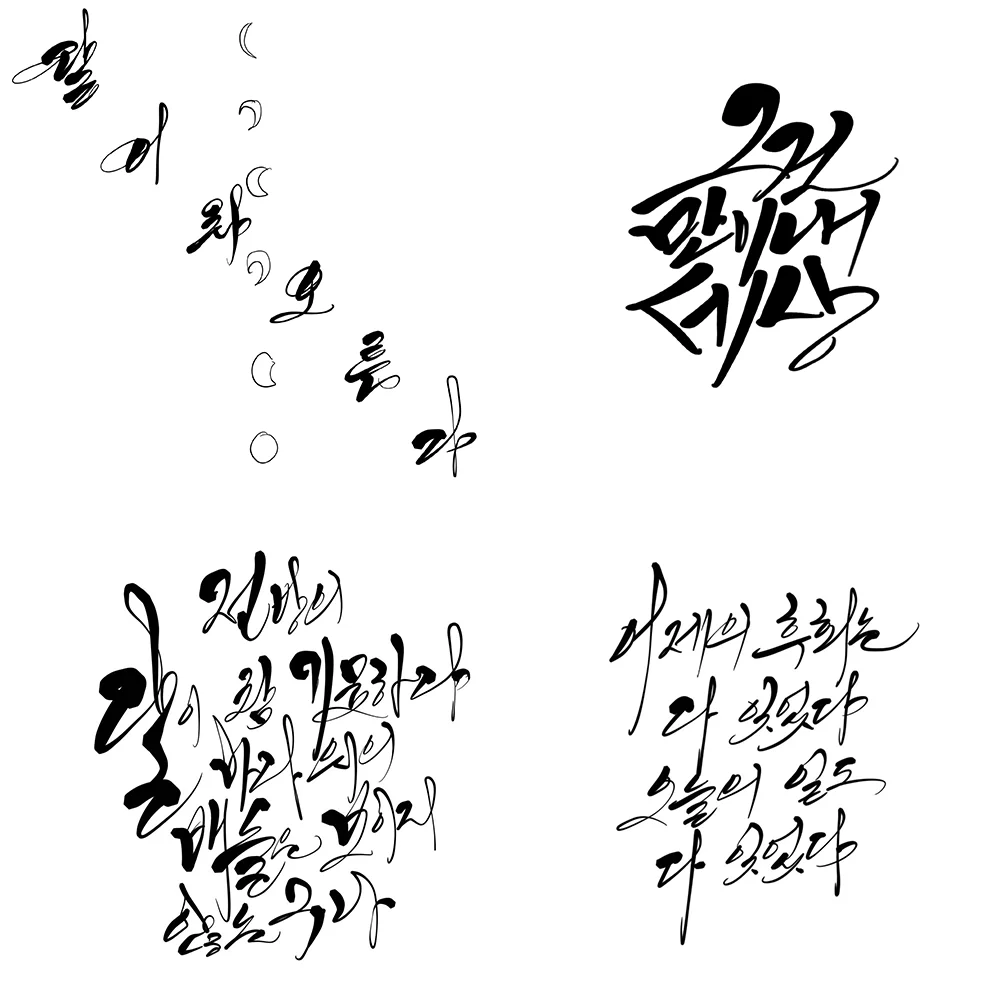 달이차오른다
그것
만이내
세상
달이 참 기묘하다
바다 위의
배들은 보이지
않는구나
어제의 후회는
다 잊었다
오늘의 일도
다 잊었다